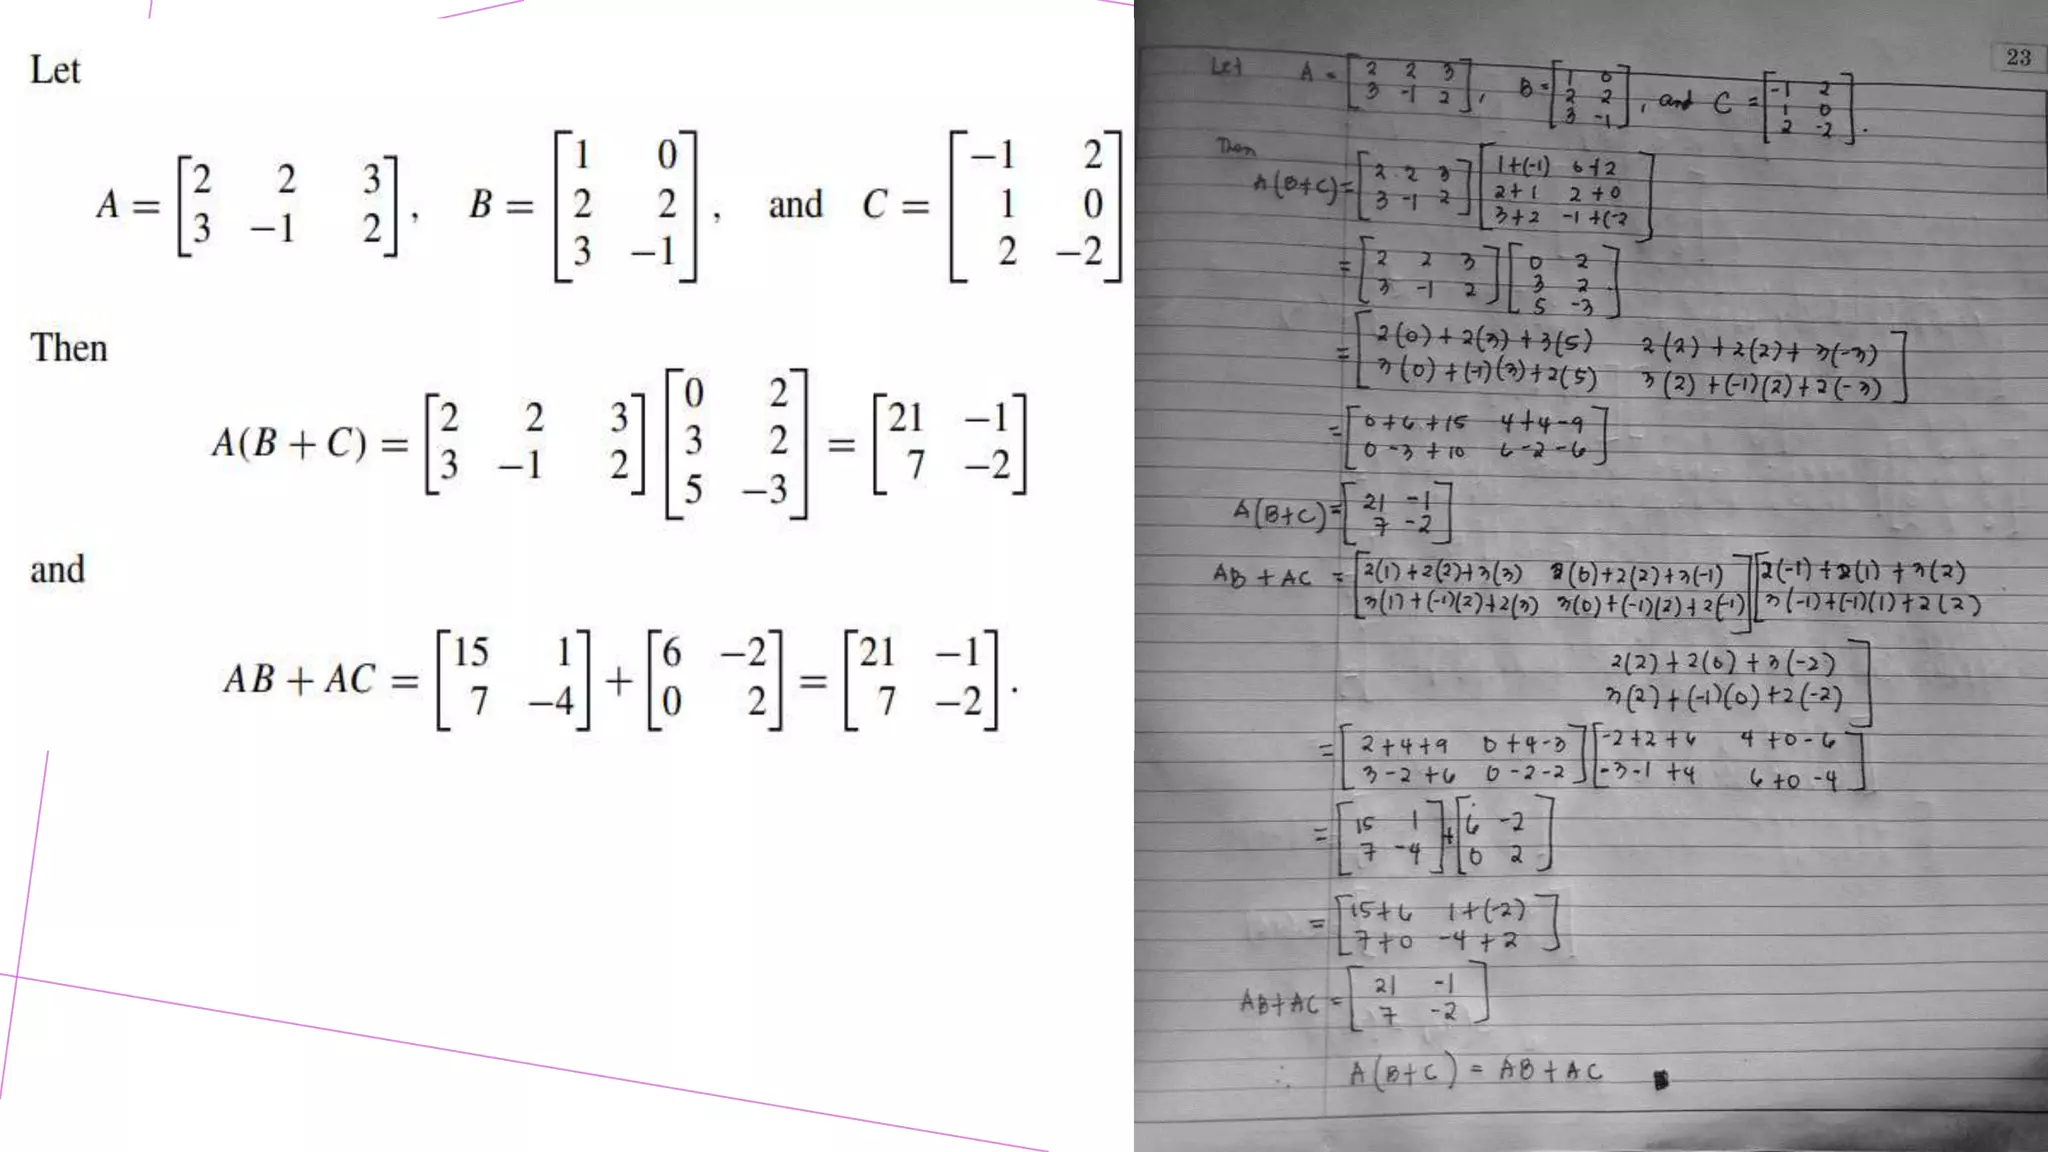 Let
A = [2 2 3; 3 −1 2], B = [1 0; 2 2; 3 −1], and C = [−1 2; 1 0; 2 −2]
Then
A(B + C) = [2 2 3; 3 −1 2] [0 2; 3 2; 5 −3] = [21 −1; 7 −2]
and
AB + AC = [15 1; 7 −4] + [6 −2; 0 2] = [21 −1; 7 −2].
23
Let A = [2 2 3; 3 -1 2], B = [1 0; 2 2; 3 -1], and C = [-1 2; 1 0; 2 -2].
Then
A(B+C) = [2 2 3; 3 -1 2] [1+(-1) 0+2; 2+1 2+0; 3+2 -1+(-2]
= [2 2 3; 3 -1 2] [0 2; 3 2; 5 -3]
= [2(0)+2(3)+3(5) 2(2)+2(2)+3(-3); 3(0)+(-1)(3)+2(5) 3(2)+(-1)(2)+2(-3)]
= [0+6+15 4+4-9; 0-3+10 6-2-6]
A(B+C) = [21 -1; 7 -2]
AB + AC = [2(1)+2(2)+3(3) 2(0)+2(2)+3(-1); 3(1)+(-1)(2)+2(3) 3(0)+(-1)(2)+2(-1)] [2(-1)+2(1)+3(2); 3(-1)+(-1)(1)+2(2)
2(2)+2(0)+3(-2); 3(2)+(-1)(0)+2(-2)]
= [2+4+9 0+4-3; 3-2+6 0-2-2] [-2+2+6 4+0-6; -3-1+4 6+0-4]
= [15 1; 7 -4] + [6 -2; 0 2]
= [15+6 1+(-2); 7+0 -4+2]
AB+AC = [21 -1; 7 -2]
∴ A(B+C) = AB+AC